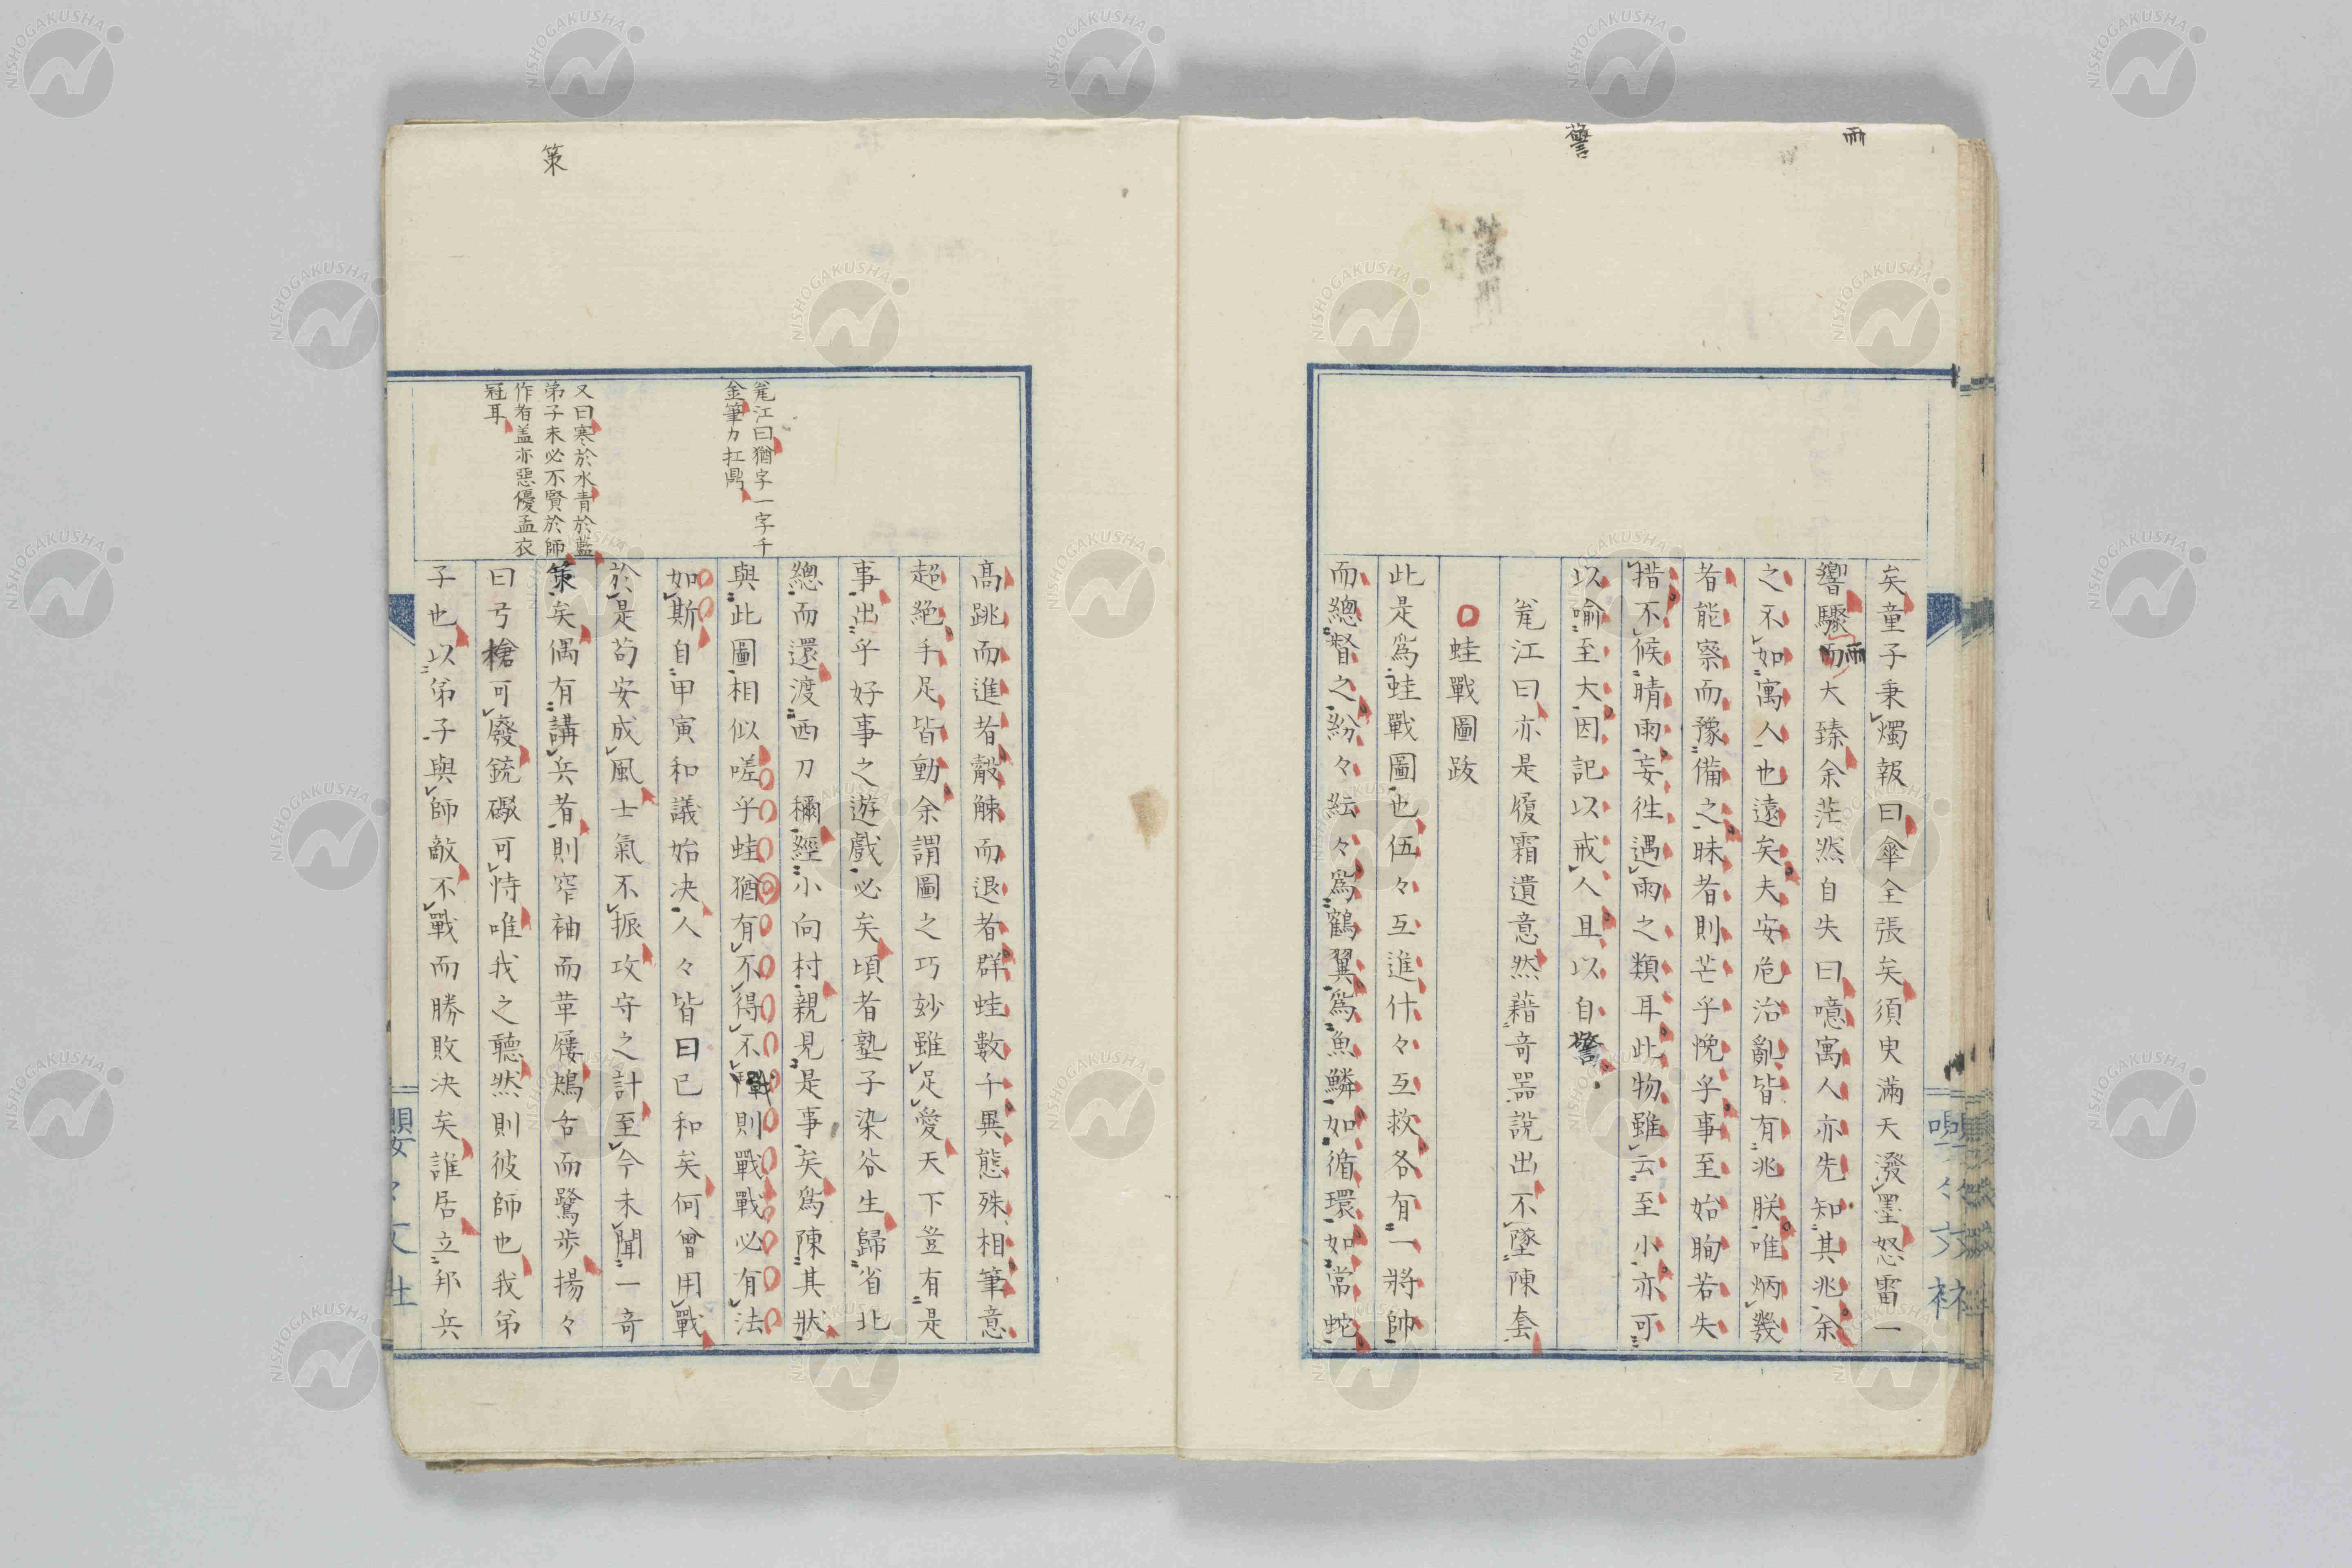 雨
警
矣童子秉燭報曰傘全張矣須臾滿天潑墨怒雷一
響驟雨大臻余茫然自失曰噫寓人亦先知其兆余
之不如寓人也遠矣夫安危治亂皆有兆朕唯炳幾
者能察而豫備之昧者則芒乎怳乎事至始眴若失
措不候晴雨妄徃遇雨之類耳此物雖云至小亦可
以喻至大因記以戒人且以自警
毣江曰亦是履霜遺意然藉奇器說出不墜陳套
蛙戰圖跋
此是爲蛙戰圖也伍々互進什々互救各有一將帥
而總督之紛々紜々爲鶴翼爲魚鱗如循環如常蛇
嚶々文社
策
高跳而進者觳觫而退者群蛙數千異態殊相筆意
超絶手足皆動余謂圖之巧妙雖足愛天下豈有是
事出乎好事之遊戲必矣頃者塾子染谷生歸省北
總而還渡西刀禰經小向村親見是事矣爲陳其狀
與此圖相似嗟乎蛙猶有不得不戰則戰戰必有法
如斯自甲寅和議始决人々皆曰已和矣何曾用戰
於是苟安成風士氣不振攻守之計至今未聞一奇
策矣偶有講兵者則窄袖而革屨鴃舌而鷺步揚々
曰弓槍可廢銃礮可恃唯我之聽然則彼師也我弟
子也以弟子與師敵不戰而勝敗决矣誰居立邦兵
毣江曰猶字一字千
金筆力扛鼎
又曰寒於水青於藍
弟子未必不賢於師
作者盖亦惡優孟衣
冠耳
嚶々文社